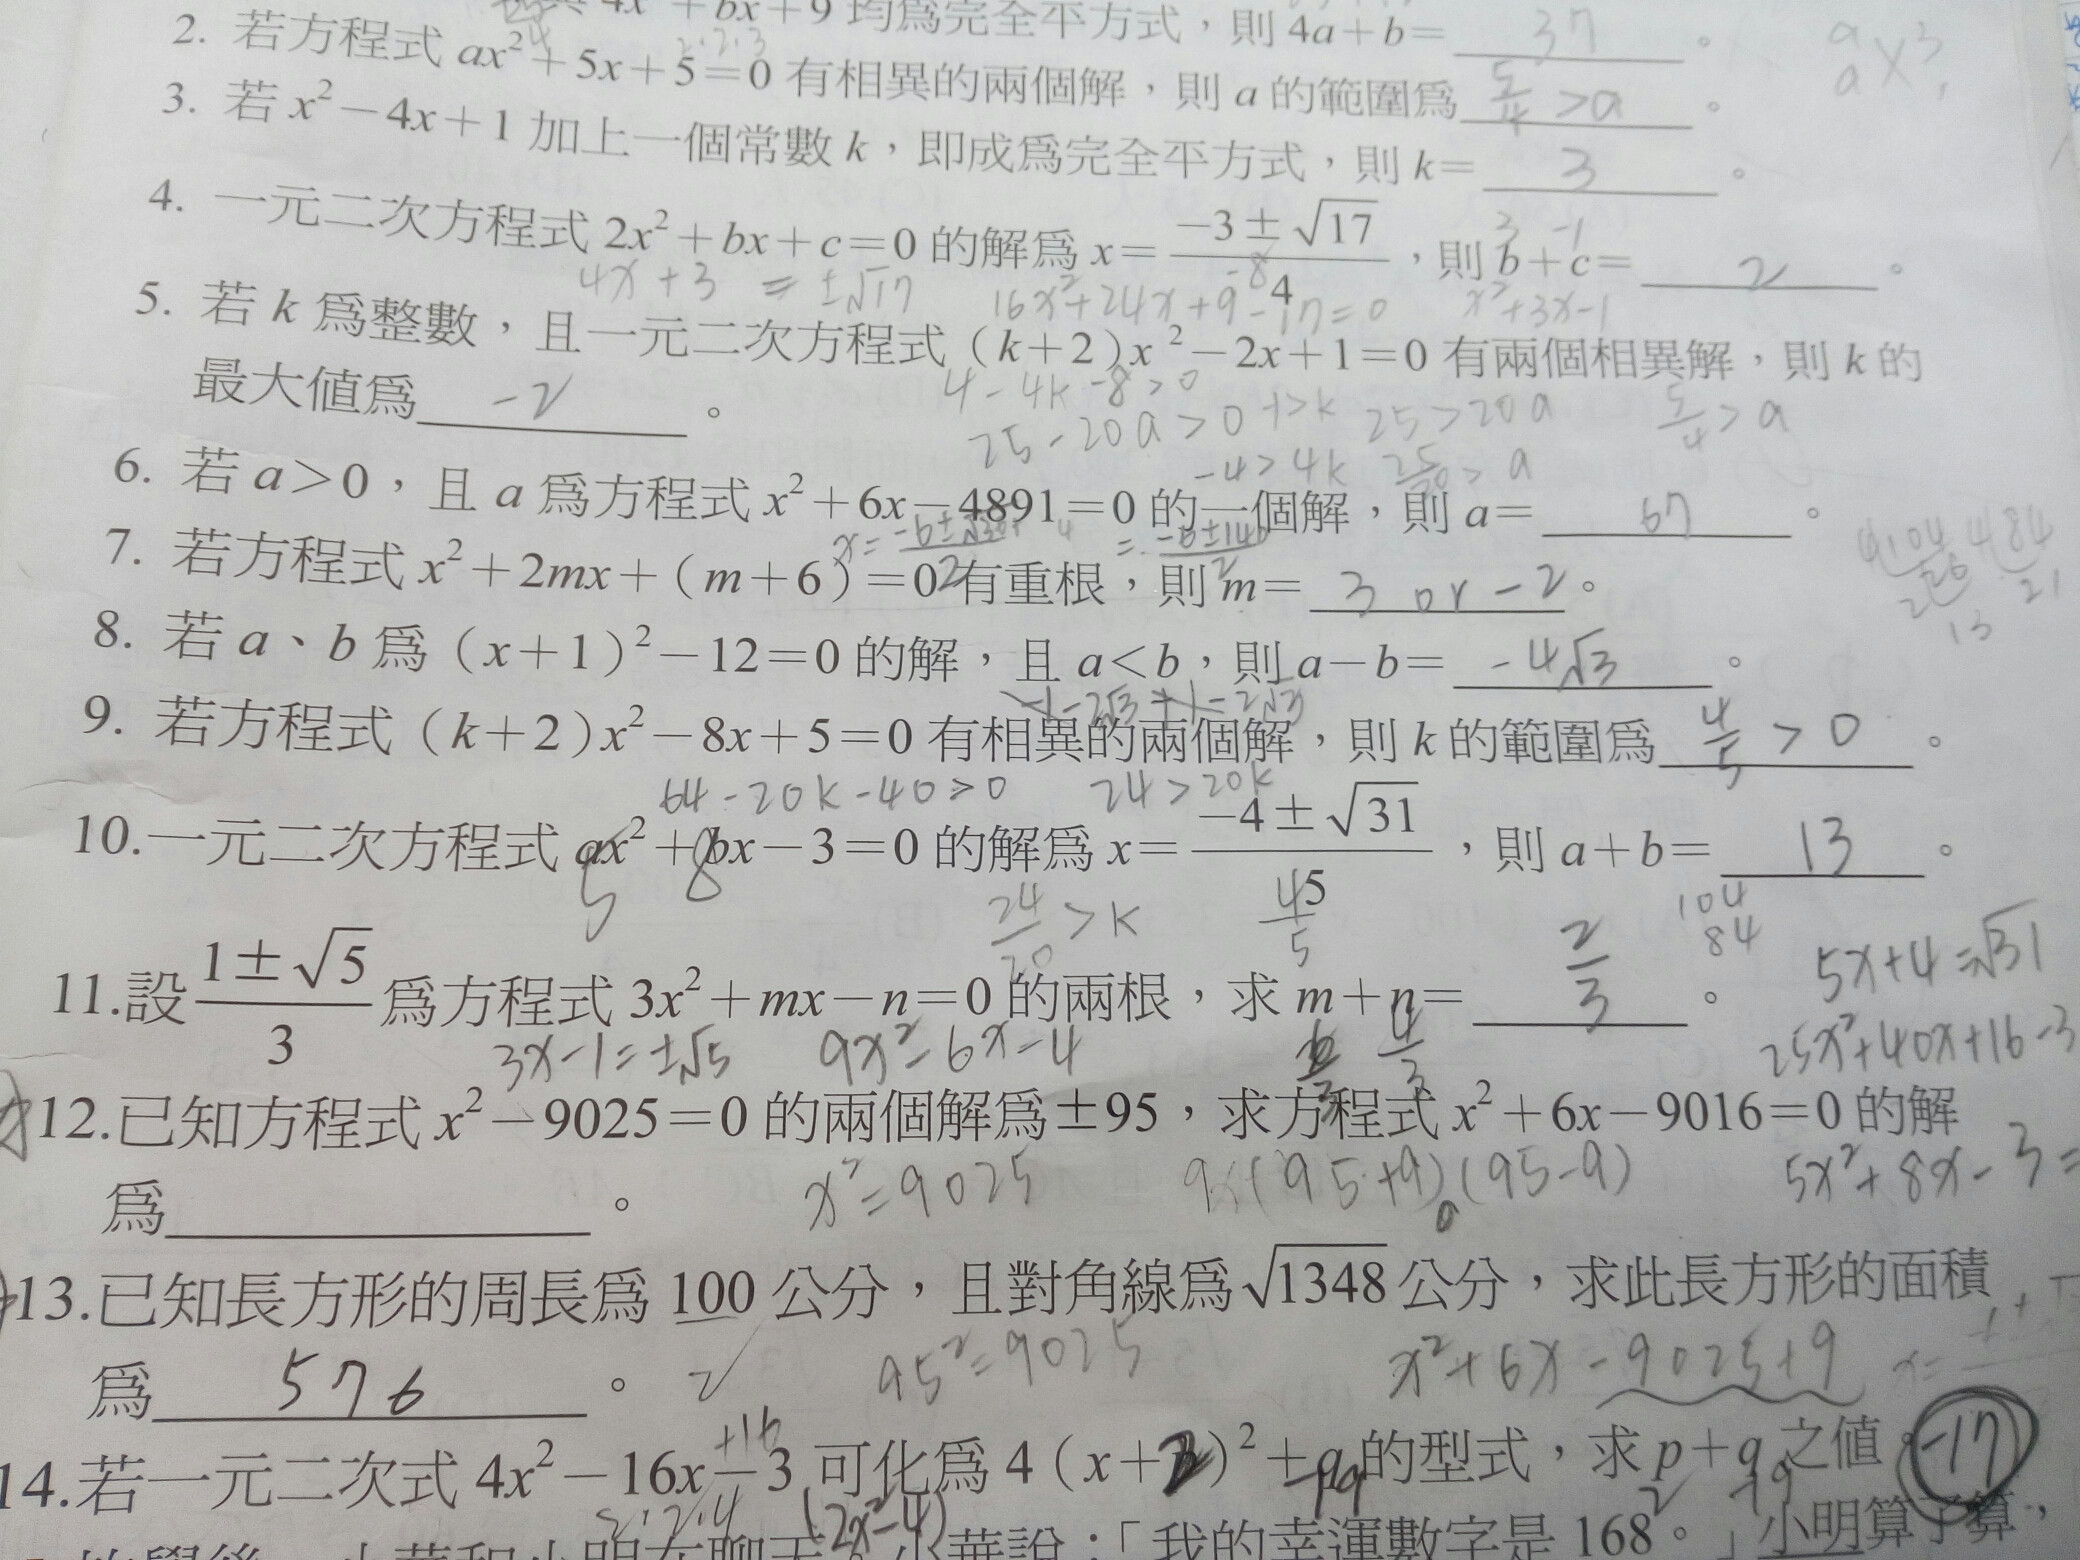 4x²+bx+9 均為完全平方式，則 4a+b= 37 。
2. 若方程式 ax²+5x+5=0 有相異的兩個解，則 a 的範圍為 5/4 >a 。
3. 若 x²-4x+1 加上一個常數 k，即成為完全平方式，則 k= 3 。
4. 一元二次方程式 2x²+bx+c=0 的解為 x= (-3±√17)/4 ，則 b+c= 2 。
4x+3 = ±√17 16x²+24x+9-17=0 x²+3x-1
5. 若 k 為整數，且一元二次方程式（k+2）x²-2x+1=0 有兩個相異解，則 k 的
最大值為 -2 。
4-4k-8>0 -1>k 25>20a 5/4>a
25-20a>0
-4>4k
6. 若 a>0，且 a 為方程式 x²+6x-4891=0 的一個解，則 a= 67 。
7. 若方程式 x²+2mx+（m+6）=0 有重根，則 m= 3 or -2 。
8. 若 a、b 為（x+1）²-12=0 的解，且 a<b，則 a-b= -4√3 。
9. 若方程式（k+2）x²-8x+5=0 有相異的兩個解，則 k 的範圍為 4/5 >0 。
64-20k-40>0 24>20k
10.一元二次方程式 ax²+bx-3=0 的解為 x= (-4±√31)/5 ，則 a+b= 13 。
5 8
24/20 >k
104
84
5x+4=√31
11.設 (1±√5)/3 為方程式 3x²+mx-n=0 的兩根，求 m+n= 2/3 。
3x-1=±√5 9x²-6x-4 4/3
25x²+40x+16-3
12.已知方程式 x²-9025=0 的兩個解為±95，求方程式 x²+6x-9016=0 的解
為 。
x²=9025 (95+9)(95-9) 5x²+8x-3=
13.已知長方形的周長為 100 公分，且對角線為√1348公分，求此長方形的面積
為 576 。
95²=9025 x²+6x-9025+9
14.若一元二次式 4x²-16x-3 可化為 4（x+p）²+q 的型式，求 p+q 之值。 -17
+16
2·2·4 (2x²-4)
小華說：「我的幸運數字是 168。」小明算了算，